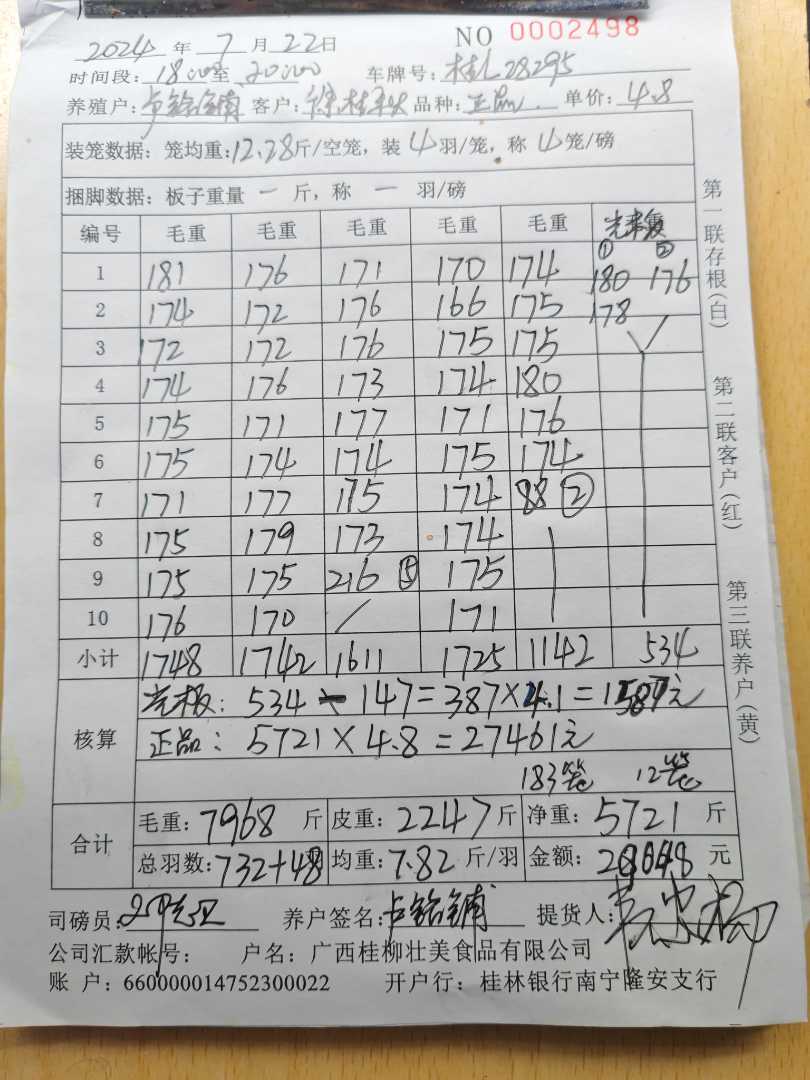 NO 0002498
2024 年 7 月 22 日
时间段: 18:00 至 20:00 车牌号: 桂L28295
养殖户: 卢铭铺 客户: 徐桂秋 品种: 正品 单价: 4.8
装笼数据: 笼均重: 12.28 斤/空笼, 装 4 羽/笼, 称 4 笼/磅
捆脚数据: 板子重量 一 斤, 称 一 羽/磅
编号 毛重 毛重 毛重 毛重 毛重
① ②
1 181 176 171 170 174 180 176
2 174 172 176 166 175 178
3 172 172 176 175 175
4 174 176 173 174 180
5 175 171 177 171 176
6 175 174 174 175 174
7 171 177 175 174 88 ②
8 175 179 173 174
9 175 175 216 ⑤ 175
10 176 170 / 171
小计 1748 1742 1611 1725 1142 534
核算
光板: 534 - 147 = 387 × 4.1 = 1587元
正品: 5721 × 4.8 = 27461元
183笼 12笼
合计
毛重: 7968 斤 皮重: 2247 斤 净重: 5721 斤
总羽数: 732+48 均重: 7.82 斤/羽 金额: 29048 元
司磅员: 养户签名: 卢铭铺 提货人:
公司汇款帐号: 户名: 广西桂柳壮美食品有限公司
账 户: 660000014752300022 开户行: 桂林银行南宁隆安支行
第一联存根(白)
第二联客户(红)
第三联养户(黄)